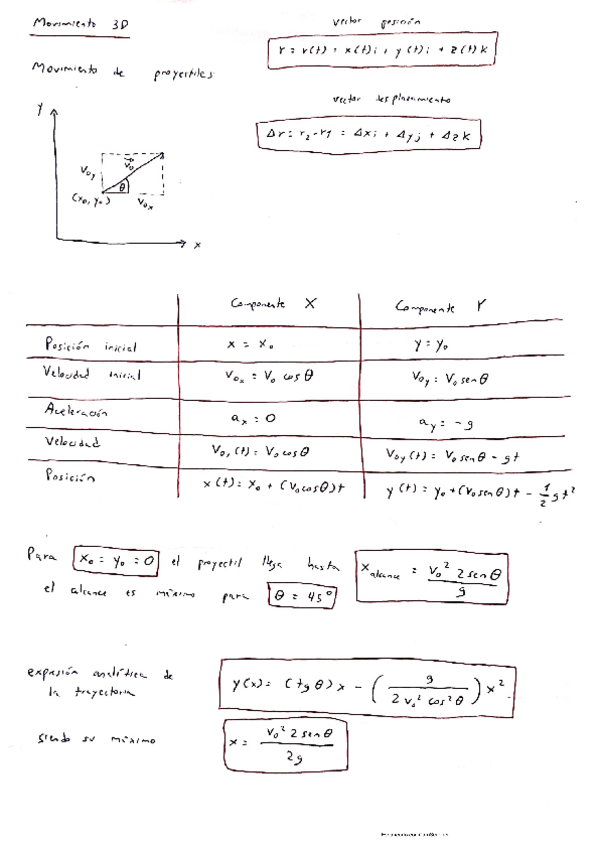 Movimiento 3D
vector posición
r = r(t) = x(t)i + y(t)i + z(t)k
Movimiento de proyectiles
vector desplazamiento
Δr = r₂-r₁ = Δxi + Δyj + Δzk
y
V₀y
V₀
θ
(x₀, y₀)
V₀x
x
Componente X Componente Y
Posición inicial x = x₀ y = y₀
Velocidad inicial V₀x = V₀ cosθ V₀y = V₀ senθ
Aceleración ax = 0 ay = -g
Velocidad V₀x(t) = V₀ cosθ V₀y(t) = V₀ senθ - gt
Posición x(t) = x₀ + (V₀cosθ)t y(t) = y₀ + (V₀senθ)t - 1/2 gt²
Para x₀ = y₀ = 0 el proyectil llega hasta x alcance = V₀² 2senθ / g
el alcance es máximo para θ = 45°
expresión analítica de
la trayectoria
y(x) = (tg θ)x - (g / 2v₀² cos²θ) x².
siendo su máximo
x = V₀² 2senθ / 2g